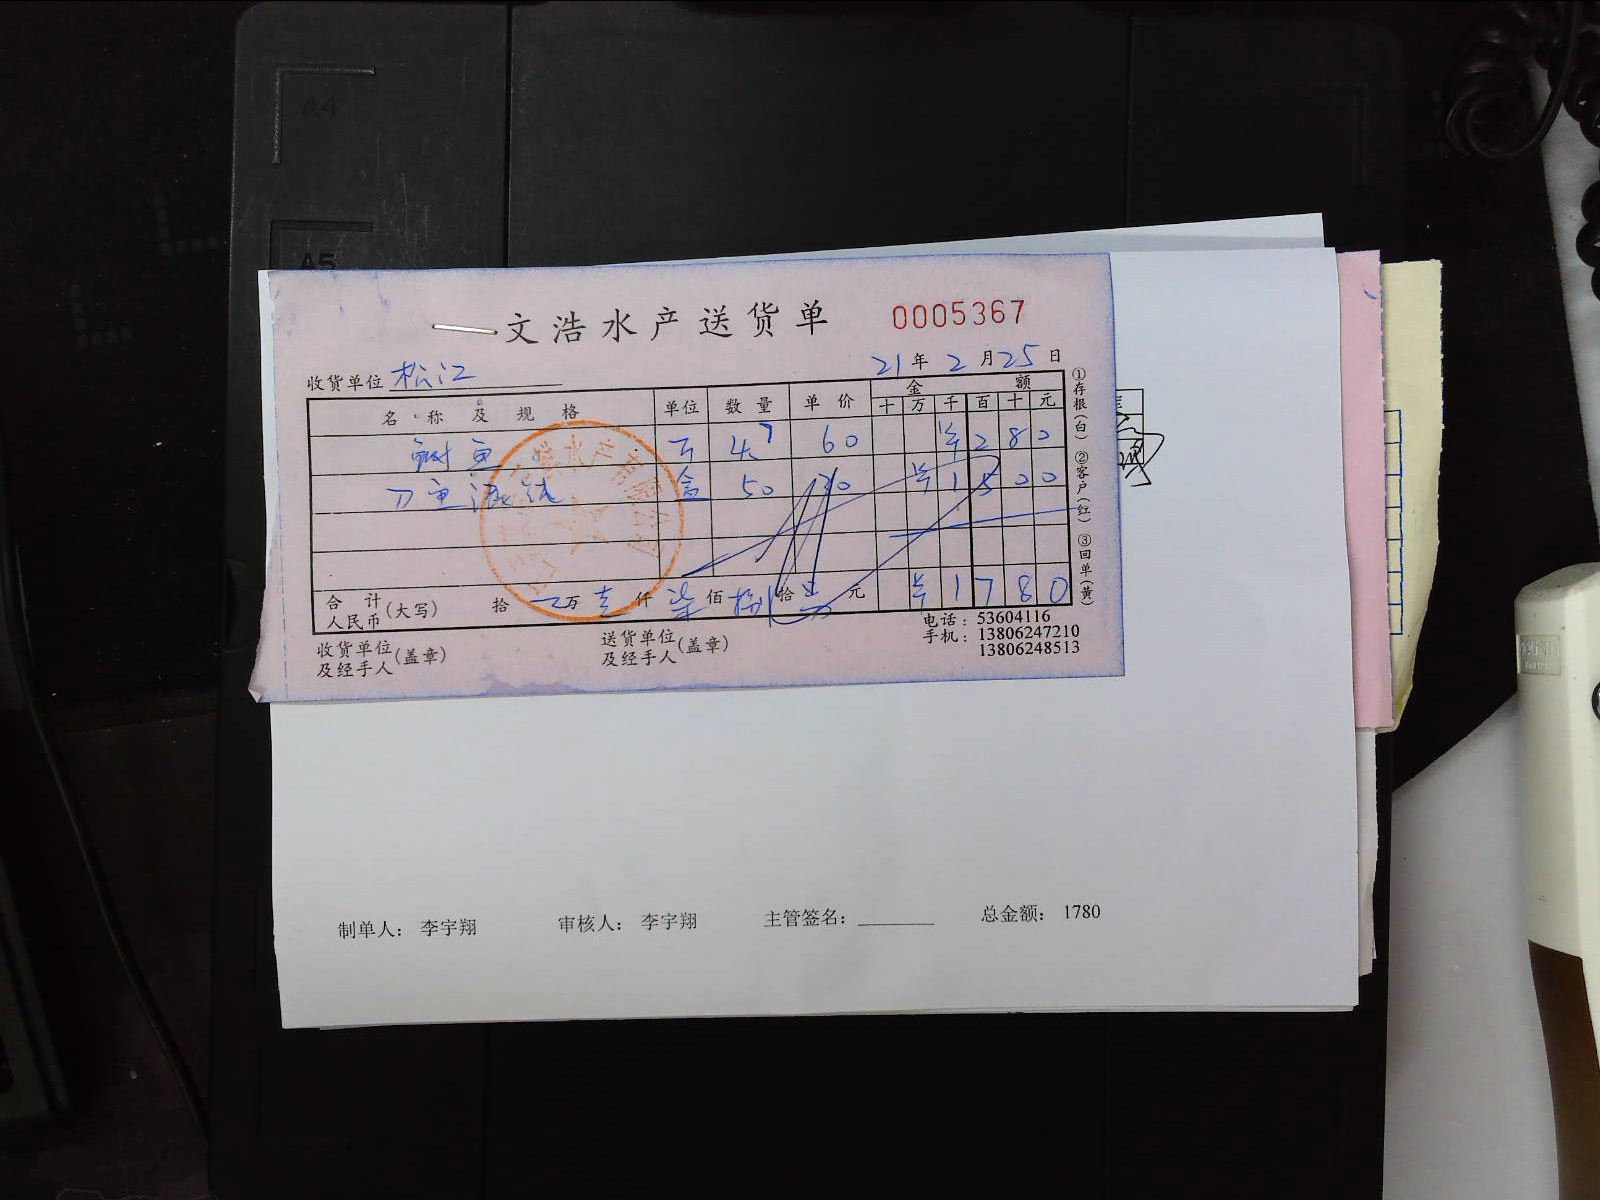 A4
A5
文浩水产送货单 0005367
收货单位 松江 21年2月25日
名称及规格 单位 数量 单价 金额
十 万 千 百 十 元
鱼 斤 4.7 60 ¥280
刀鱼馄饨 盒 50 30 ¥1500
合计人民币(大写) 拾 万 壹仟 柒佰 捌拾 元 ¥1780
①存根(白) ②客户(红) ③回单(黄)
收货单位及经手人(盖章) 送货单位及经手人(盖章)
电话：53604116
手机：13806247210
13806248513
制单人： 李宇翔 审核人： 李宇翔 主管签名：________ 总金额： 1780